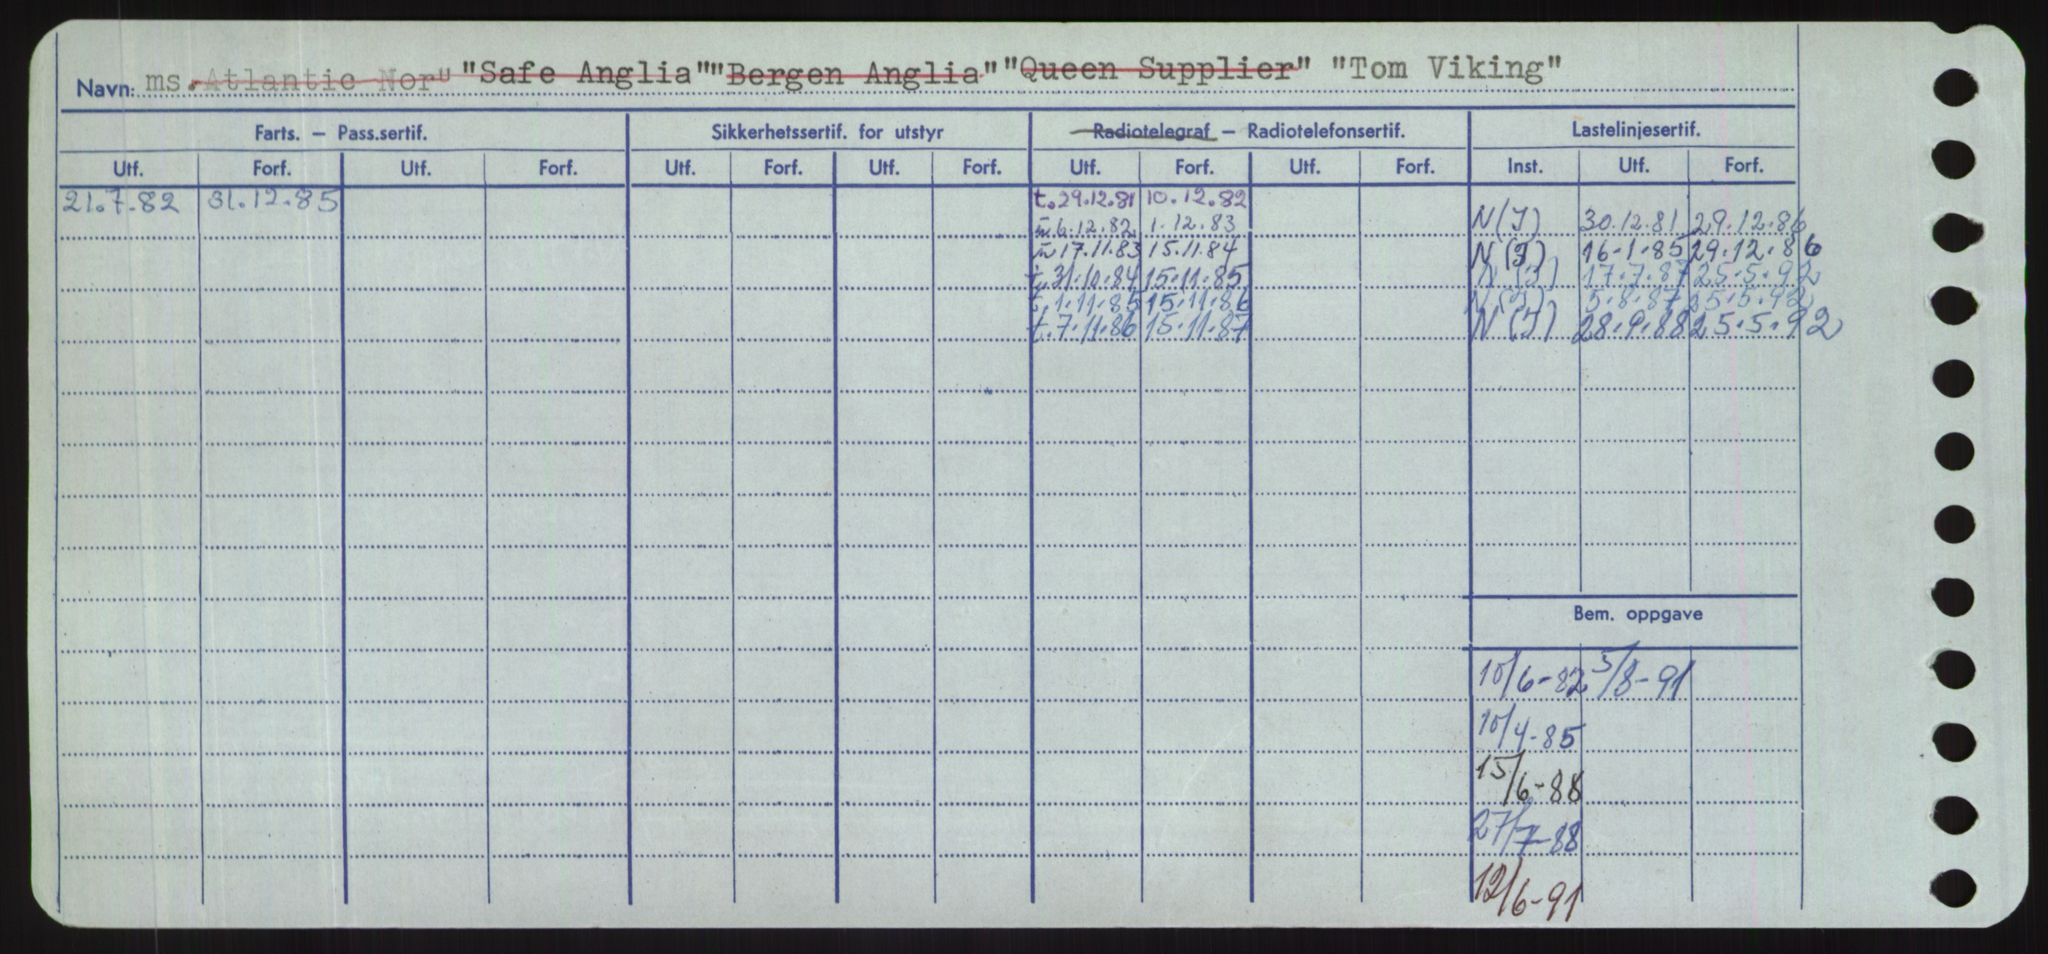 Navn: ms. Atlantic Nor" "Safe Anglia" "Bergen Anglia" "Queen Supplier" "Tom Viking"
Farts. – Pass.sertif. Sikkerhetssertif. for utstyr Radiotelegraf – Radiotelefonsertif. Lastelinjesertif.
Utf. Forf. Utf. Forf. Utf. Forf. Utf. Forf. Utf. Forf. Utf. Forf. Inst. Utf. Forf.
21.7.82 31.12.85 t. 29.12.81 10.12.82
6.12.82 1.12.83 N(I) 30.12.81 29.12.86
17.11.83 15.11.84 N(I) 16.1.85 29.12.86
t. 31.10.84 15.11.85 N(I) 17.7.87 25.5.92
t. 1.11.85 15.11.86 N(I) 5.8.87 25.5.92
t. 7.11.86 15.11.87 N(I) 28.9.88 25.5.92
Bem. oppgave
10/6-82 5/8-91
10/4-85
15/6-88
27/7-88
12/6-91